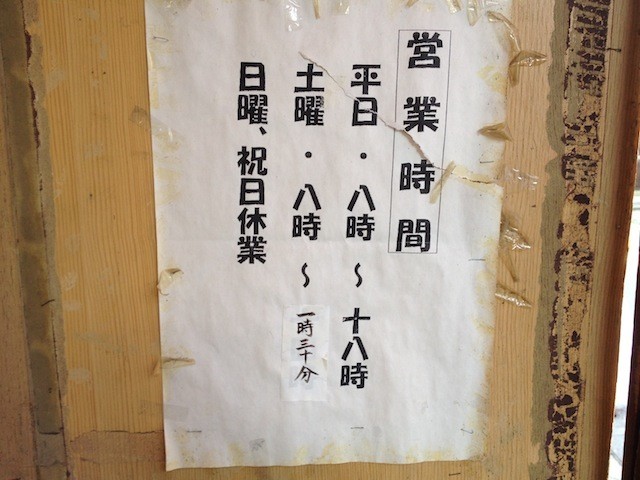 営業時間
平日・八時～十八時
土曜・八時～一時三十分
日曜、祝日休業